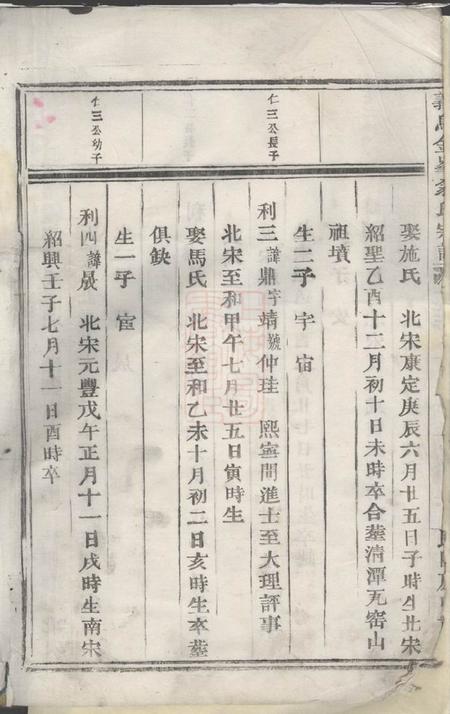 娶施氏 北宋康定庚辰六月廿五日子時生北宋
紹聖乙酉十二月初十日未時卒合塟清潭瓦窑山
祖墳
生二子 宇 宿
仁三公長子
利三 諱鼎字靖號仲珪 熙寧間進士至大理評事
北宋至和甲午七月廿五日寅時生
娶馬氏 北宋至和乙未十月初二日亥時生卒塟
俱缺
生一子 宦
仁三公幼子
利四 諱晸 北宋元豐戊午正月十一日戌時生南宋
紹興壬子七月十一日酉時卒